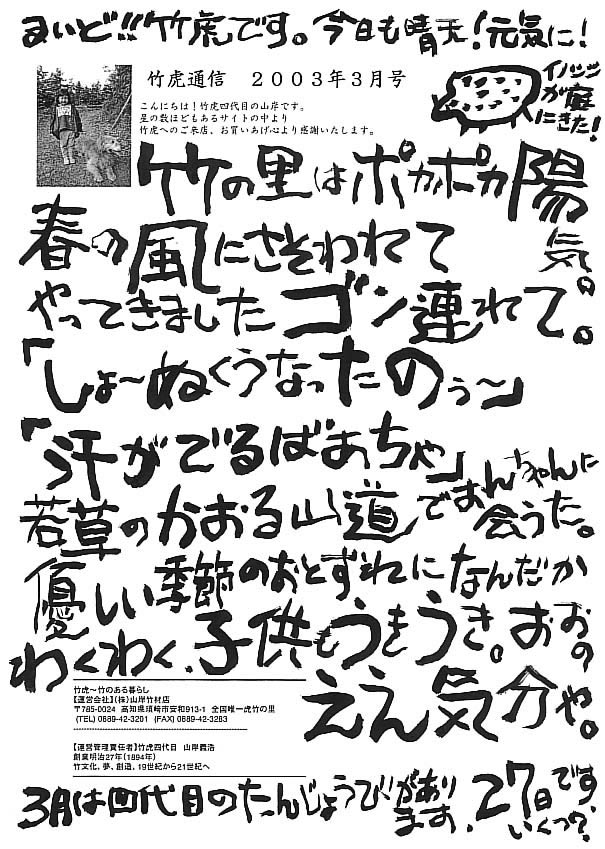 まいど!!!竹虎です。今日も晴天!元気に!
イノシシが庭にきた!
竹虎通信 2003年3月号
こんにちは!竹虎四代目の山岸です。
星の数ほどもあるサイトの中より
竹虎へのご来店、お買いあげ心より感謝いたします。
竹の里はポカポカ陽気。
春の風にさそわれて
やってきましたゴン連れて。
「しょ〜ぬくうなったのぅ〜」
「汗がでるばあちゃ」
若草のかおる山道であんちゃんに会うた。
優しい季節のおとずれになんだか
わくわく、子供もうきうき。おおの
ええ気分や。
竹虎〜竹のある暮らし
【運営会社】(株)山岸竹材店
〒785-0024 高知県須崎市安和913-1 全国唯一虎竹の里
(TEL) 0889-42-3201 (FAX) 0889-42-3283
【運営管理責任者】竹虎四代目 山岸義浩
創業明治27年(1894年)
竹文化、夢、創造、19世紀から21世紀へ
3月は四代目のたんじょうびがあります、27日です、いくつ?